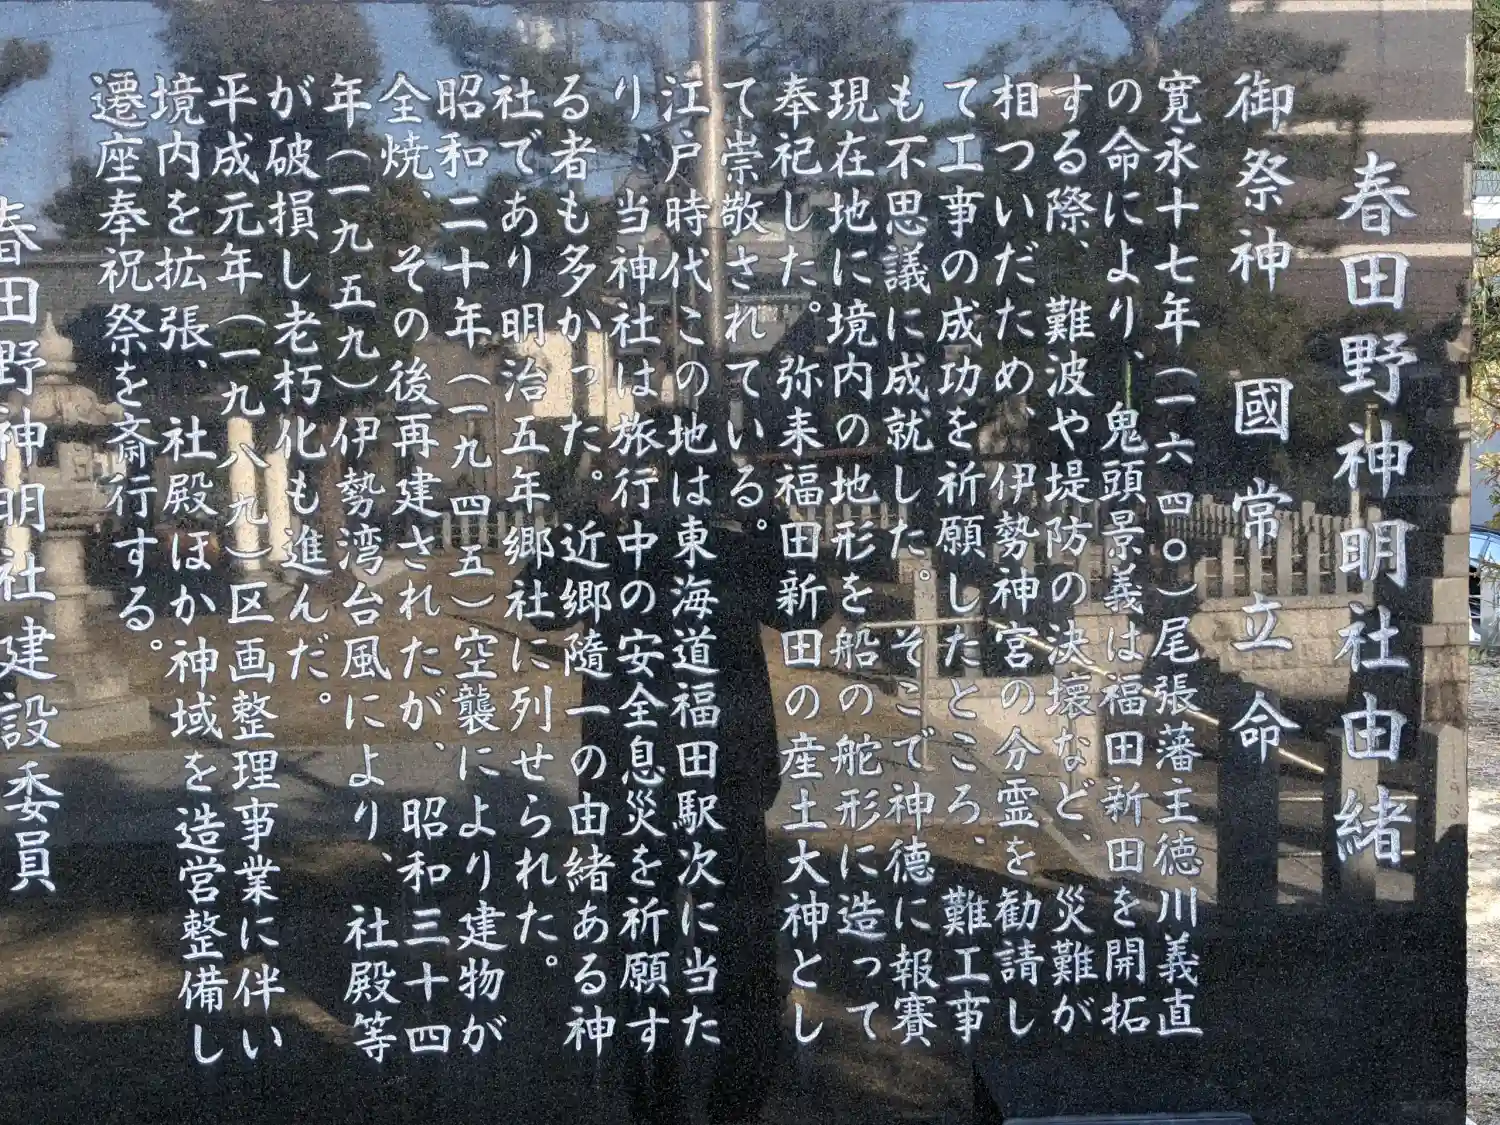 春田野神明社由緒
御祭神 國常立命
寛永十七年(一六四〇)尾張藩主徳川義直
の命により、鬼頭景義は福田新田を開拓
する際、難波や堤防の決壊など、災難が
相ついだため、伊勢神宮の分霊を勧請し
て工事の成功を祈願したところ、難工事
も不思議に成就した。そこで神徳に報賽
現在地に境内の地形を船の舵形に造って
奉祀した。弥来福田新田の産土大神とし
て崇敬されている。
江戸時代この地は東海道福田駅次に当た
り、当神社は旅行中の安全息災を祈願す
る者も多かった。近郷随一の由緒ある神
社であり明治五年郷社に列せられた。
昭和二十年(一九四五)空襲により建物が
全焼、その後再建されたが、昭和三十四
年(一九五九)伊勢湾台風により、社殿等
が破損し老朽化も進んだ。
平成元年(一九八九)区画整理事業に伴い
境内を拡張、社殿ほか神域を造営整備し
遷座奉祝祭を斎行する。
春田野神明社建設委員